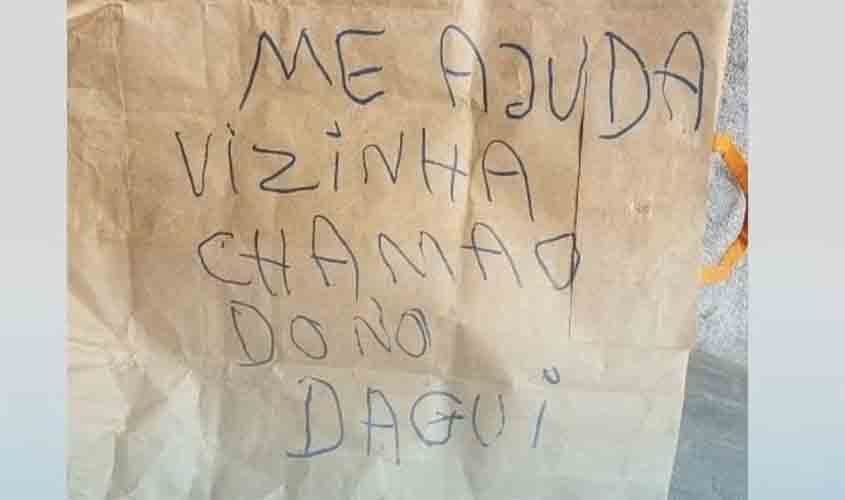 ME AJUDA
ViZiNHA
CHAMA O
DONO
DAGUi